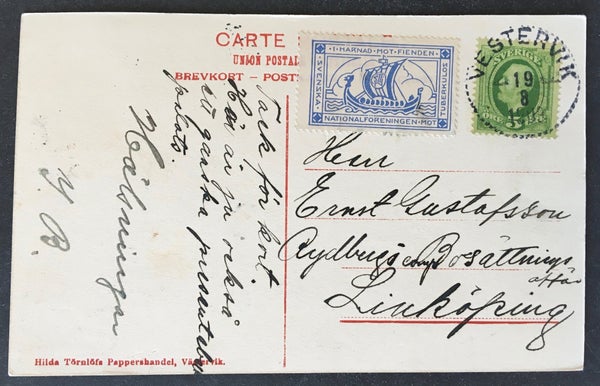 CARTE
UNION POSTAL
BREVKORT – POST
I HÄRNAD MOT FIENDEN
SVENSKA
NATIONALFÖRENINGEN MOT
TUBERKULOS
SVERIGE
5 ÖRE
VESTERVIK
19
8
Tack för kort
Här är ju också
ett ganska presentabelt
palats.
Hälsningar
Y B.
Herr
Ernst Gustafsson
Rydbergs Bosättnings
affär
Linköping
Hilda Törnlöfs Pappershandel, Västervik.